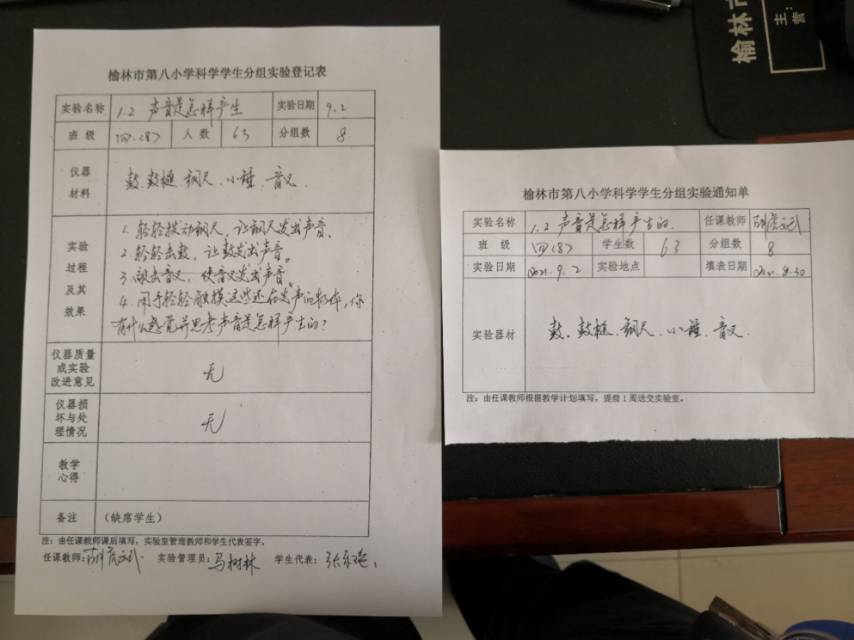 榆林市第八小学科学学生分组实验登记表
实验名称 1.2 声音是怎样产生 实验日期 9.2
班 级 四(8) 人 数 63 分组数 8
仪器
材料
鼓、鼓槌、钢尺、小锤、音叉
实验
过程
及其
效果
1. 轻轻拨动钢尺，让钢尺发出声音。
2 轻轻击鼓，让鼓发出声音。
3 敲击音叉，使音叉发出声音。
4. 用手轻轻触摸这些还在发声的物体，你
有什么感觉并思考声音是怎样产生的？
仪器质量
或实验
改进意见
无
仪器损
坏与处
理情况
无
教学
心得
备注 （缺席学生）
注：由任课教师课后填写，实验室管理教师和学生代表签字。
任课教师： 实验管理员：马树林 学生代表：张
榆林市第八小学科学学生分组实验通知单
实验名称 1.2 声音是怎样产生的. 任课教师
班 级 四(8) 学生数 63 分组数 8
实验日期 2021.9.2 实验地点 填表日期 2021.8.30
实验器材 鼓、鼓槌、钢尺、小锤、音叉
注：由任课教师根据教学计划填写，提前1周送交实验室。
榆林市
主：
营